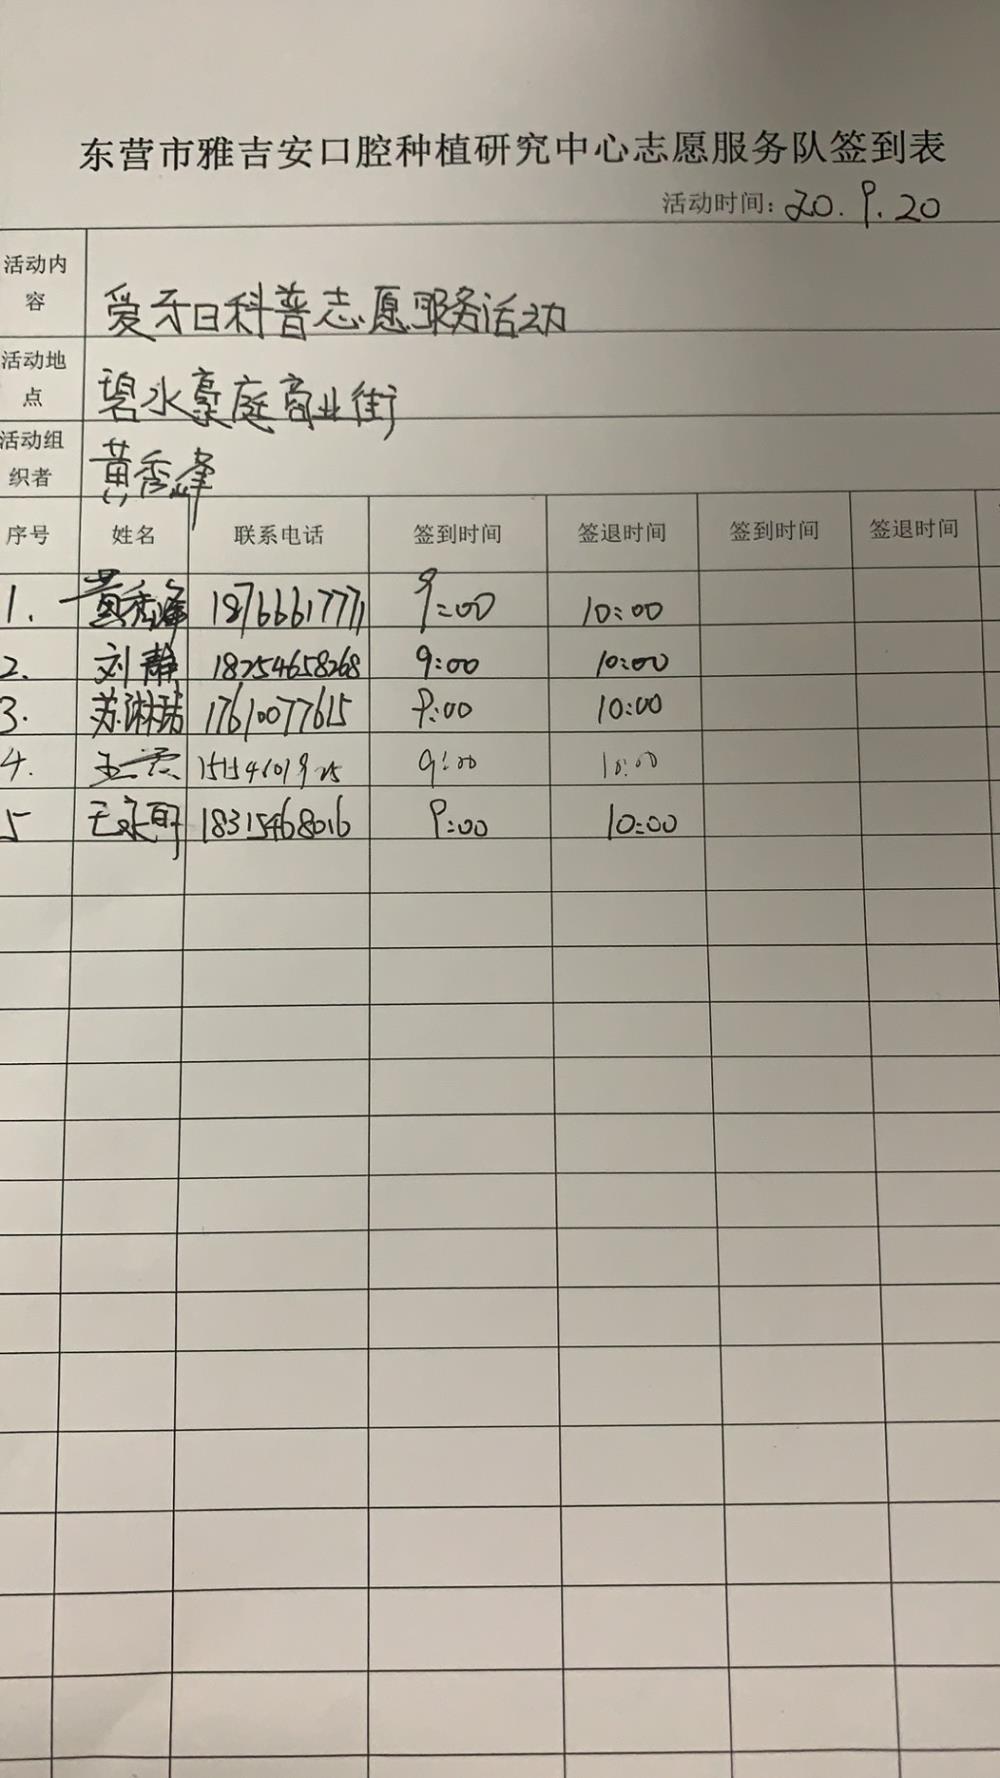 东营市雅吉安口腔种植研究中心志愿服务队签到表
活动时间：20.9.20
活动内容 爱牙日科普志愿服务活动
活动地点 碧水豪庭商业街
活动组织者 黄秀峰
序号 姓名 联系电话 签到时间 签退时间 签到时间 签退时间
1. 黄秀峰 18766617771 9:00 10:00
2. 刘静 18254658268 9:00 10:00
3. 苏琳 17610077615 9:00 10:00
4. 王霞 15154601925 9:00 10:00
5 王 18315468016 9:00 10:00